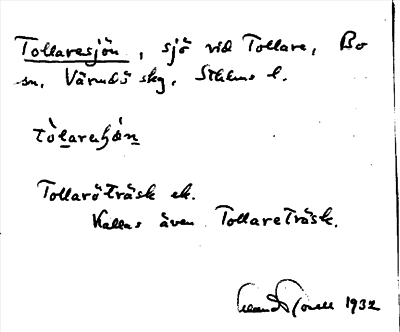 Tollaresjön, sjö vid Tollare, Bo
sn, Värmdö skg, Sthlms l.
tòlarehǿn
Tollaröträsk ek.
Kallas även Tollareträsk.
1932